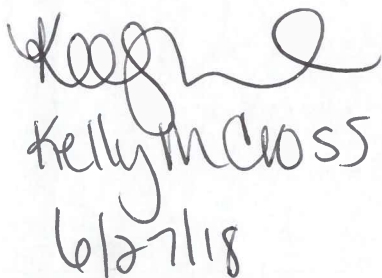 Kelly M Cross
6/27/18